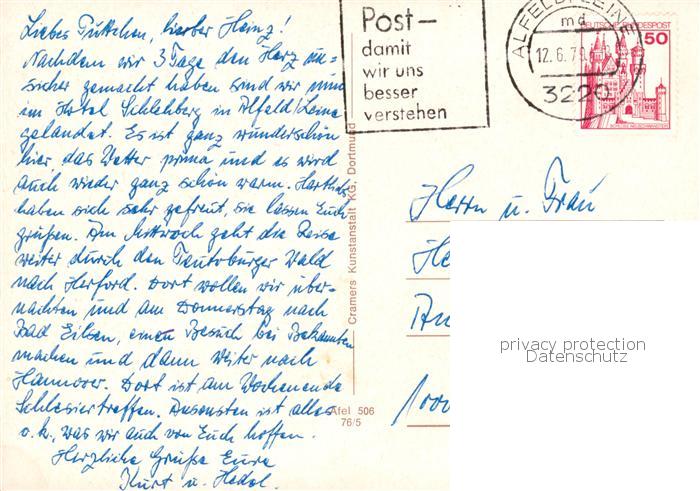 Liebes Püttchen, lieber Heinz!
Nachdem wir 3 Tage den Harz un-
sicher gemacht haben sind wir nun
im Hotel Schlehberg in Alfeld/Leine
gelandet. Es ist ganz wunderschön
hier das Wetter prima und es wird
auch wieder ganz schön warm.
haben sich sehr gefreut, sie lassen Euch
grüßen. Am Mittwoch geht die Reise
weiter durch den Teutoburger Wald
nach Herford. Dort wollen wir über-
nachten und am Donnerstag nach
Bad Eilsen, einen Besuch bei Bekannten
machen und dann weiter nach
Hannover. Dort ist am Wochenende
Schlesiertreffen. Ansonsten ist alles
o.k., was wir auch von Euch hoffen.
Herzliche Grüße Eure
Kurt u. Hedel.
Post—
damit
wir uns
besser
verstehen
ALFELD, LEINE
md
12.6.79
3220
DEUTSCHE BUNDESPOST
50
SCHLOSS NEUSCHWANSTEIN
Cramers Kunstanstalt KG, Dortmund
Afel 506
76/5
Herrn u. Frau
He
1000
privacy protection
Datenschutz